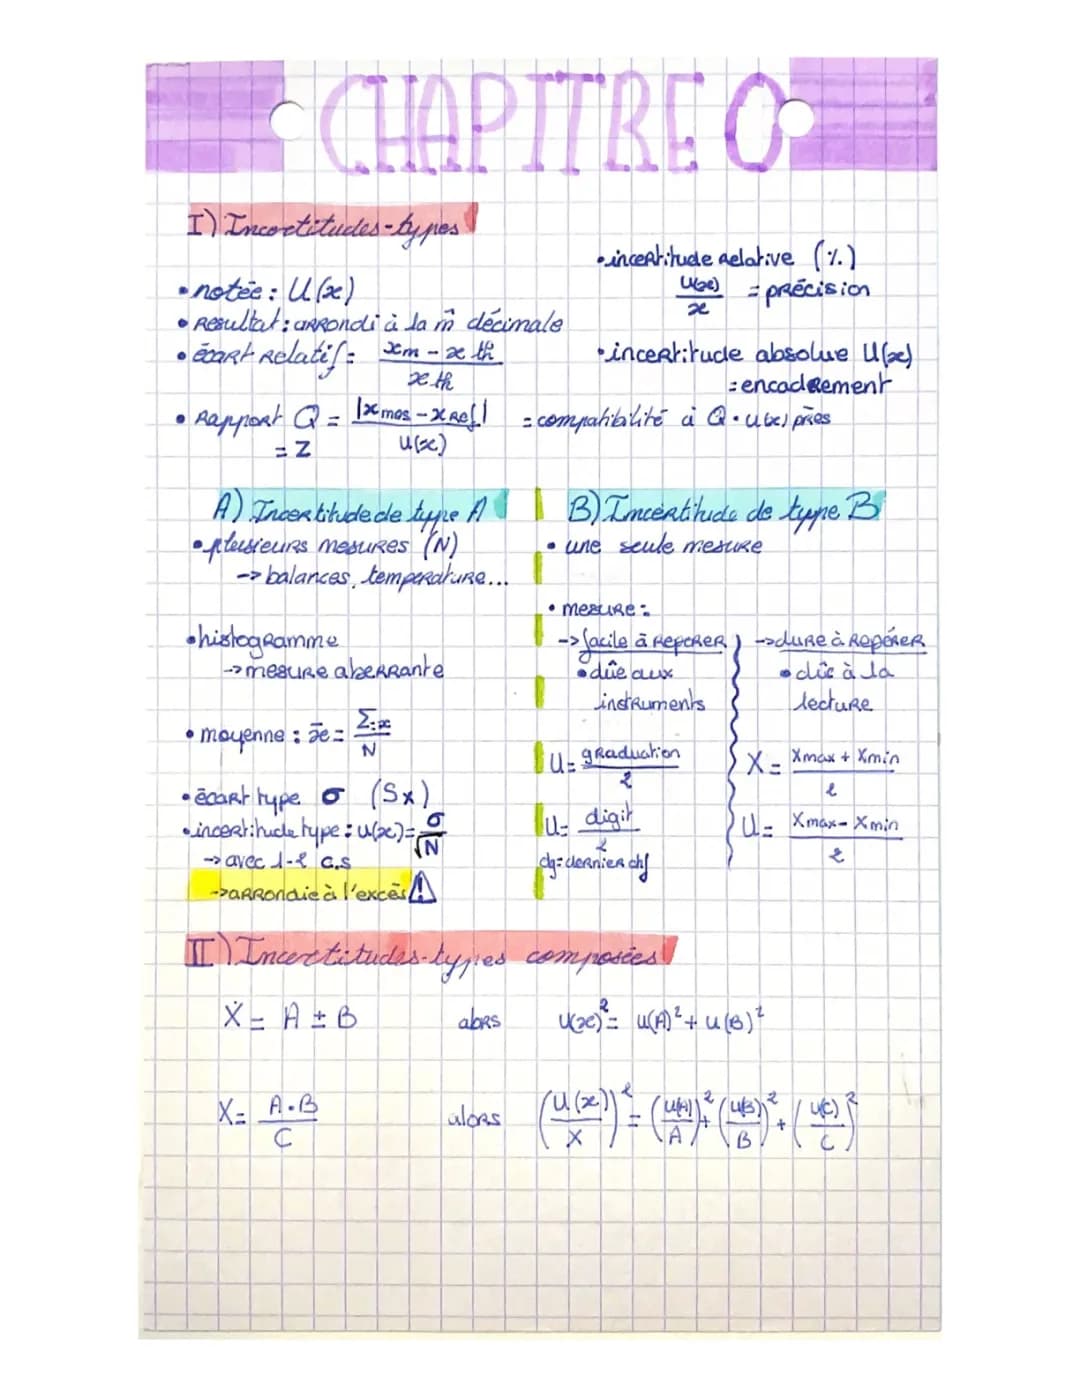 CHAPITRE 0
I) Incertitudes-types
• notée : U(x)
• Resultat : arrondi à la m̂ décimale
• écart relatif = (xm - x th) / x th
• Rapport Q = |x mes - x Ref| / u(x) = compatibilité à Q • u(x) près
= Z
• incertitude relative (%)
u(x) / x = précision
• incertitude absolue U(x)
= encadrement
A) Incertitude de type A
• plusieurs mesures (N)
-> balances, temperature...
• histogramme
-> mesure aberrante
• moyenne : x̄ = Σx / N
• écart type σ (Sx)
• incertitude type : u(x) = σ / √N
-> avec 1-2 C.S
-> arrondie à l'excès ⚠
B) Incertitude de type B
• une seule mesure
• mesure :
-> facile à reperer
• dûe aux
instruments
U = graduation / 2
U = digit / 2
dg = dernier chf
-> dure à repérer
• dûe à la
lecture
X = (Xmax + Xmin) / 2
U = (Xmax - Xmin) / 2
II) Incertitudes-types composées
X = A ± B alors u(x)² = u(A)² + u(B)²
X = A • B / C alors (U(x) / X)² = (u(A) / A)² + (u(B) / B)² + (u(C) / C)²